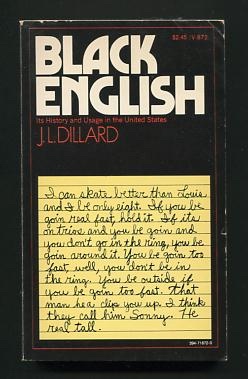 $2.45 / V-872
BLACK
ENGLISH
Its History and Usage in the United States
J.L. DILLARD
I can skate better than Louis
and I be only eight. If you be
goin real fast, hold it. If its
on trios and you be goin and
you don't go in the ring, you be
goin around it. You be goin too
fast, well, you don't be in
the ring. You be outside if
you be goin too fast. That
man he a clip you up. I think
they call him Sonny. He
real tall.
394-71872-0